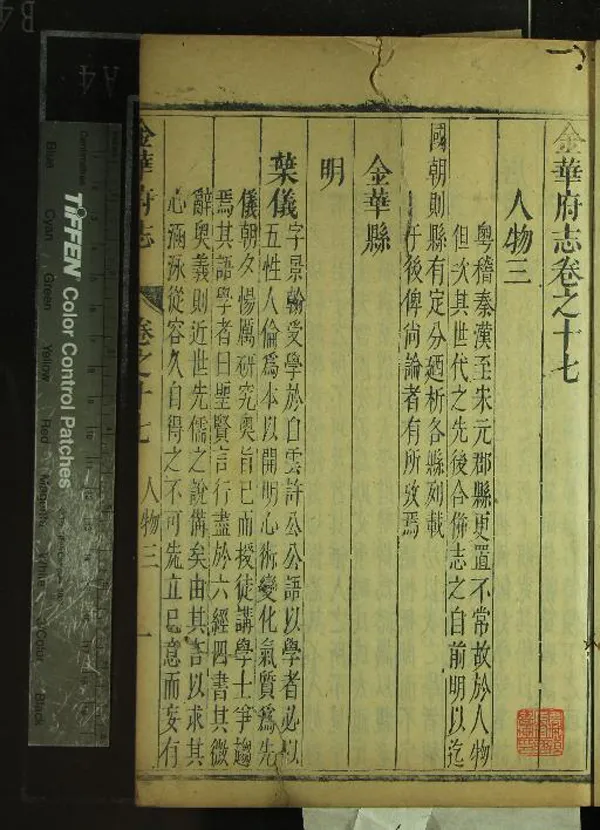 金華府志卷之十七
人物三
粵稽秦漢至宋元郡縣更置不常故於人物
但次其世代之先後合倂志之自前明以迄
國朝則縣有定分廼析各縣列載
于後俾尚論者有所攷焉
金華縣
明
葉儀字景翰受學於白雲許公公語以學者必以
五性人倫爲本以開明心術變化氣質爲先
儀朝夕惕厲研究奥旨已而授徒講學士爭趨
焉其語學者曰聖賢言行盡於六經四書其微
辭奥義則近世先儒之說備矣由其言以求其
心涵泳從容久自得之不可先立已意而妄有
金華府志 卷之十七 人物三 一
TIFFEN Color Control Patches
Blue
Cyan
Green
Yellow
Red
Magenta
White
3/Color
Black
A4
B4